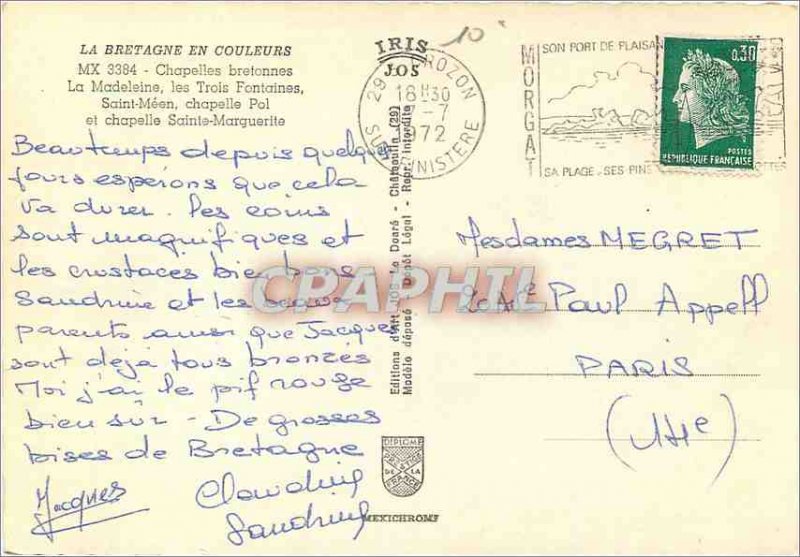 LA BRETAGNE EN COULEURS
MX 3384 - Chapelles bretonnes
La Madeleine, les Trois Fontaines,
Saint-Méen, chapelle Pol
et chapelle Sainte-Marguerite
Beau temps depuis quelque
jours espérons que cela
va durer. Les coins
sont magnifiques et
les crustaces bien bons
Sandrine et les beaux
parents ainsi que Jacques
sont deja tous bronzés
Moi j'ai le pif rouge
bien sûr - De grosses
bises de Bretagne
Jacques
Claudine
Sandrine
IRIS
JOS
Editions d'Art JOS Le Doaré - Châteaulin (29)
Modèle déposé - Dépôt Légal - Repr. interdite
DIPLOME
PRESTIGE
DE LA
FRANCE
MEXICHROME
10
29 CROZON
18H30
-7
1972
SUD FINISTERE
MORGAT
SON PORT DE PLAISAN
SA PLAGE - SES PINS
0,30
POSTES
REPUBLIQUE FRANÇAISE
Mesdames MEGRET
Paul Appell
PARIS
(14e)
CPAPHIL